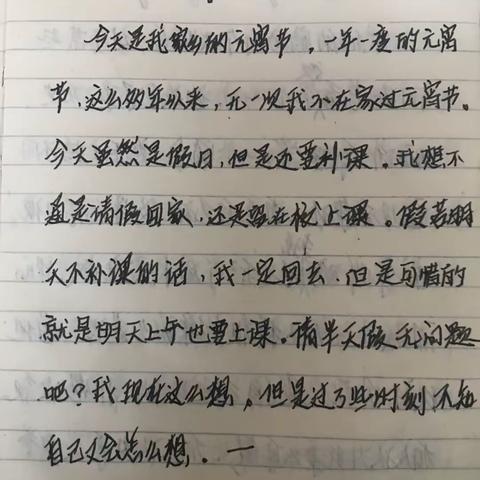 今天是我家乡的元宵节，一年一度的元宵
节，这么多年以来，无一次我不在家过元宵节。
今天虽然是假日，但是还要补课。我想不
通是请假回家，还是留在校上课。假若明
天不补课的话，我一定回去，但是可惜的
就是明天上午也要上课。请半天假无问题
吧？我现在这么想，但是过了些时刻不知
自己又会怎么想。一